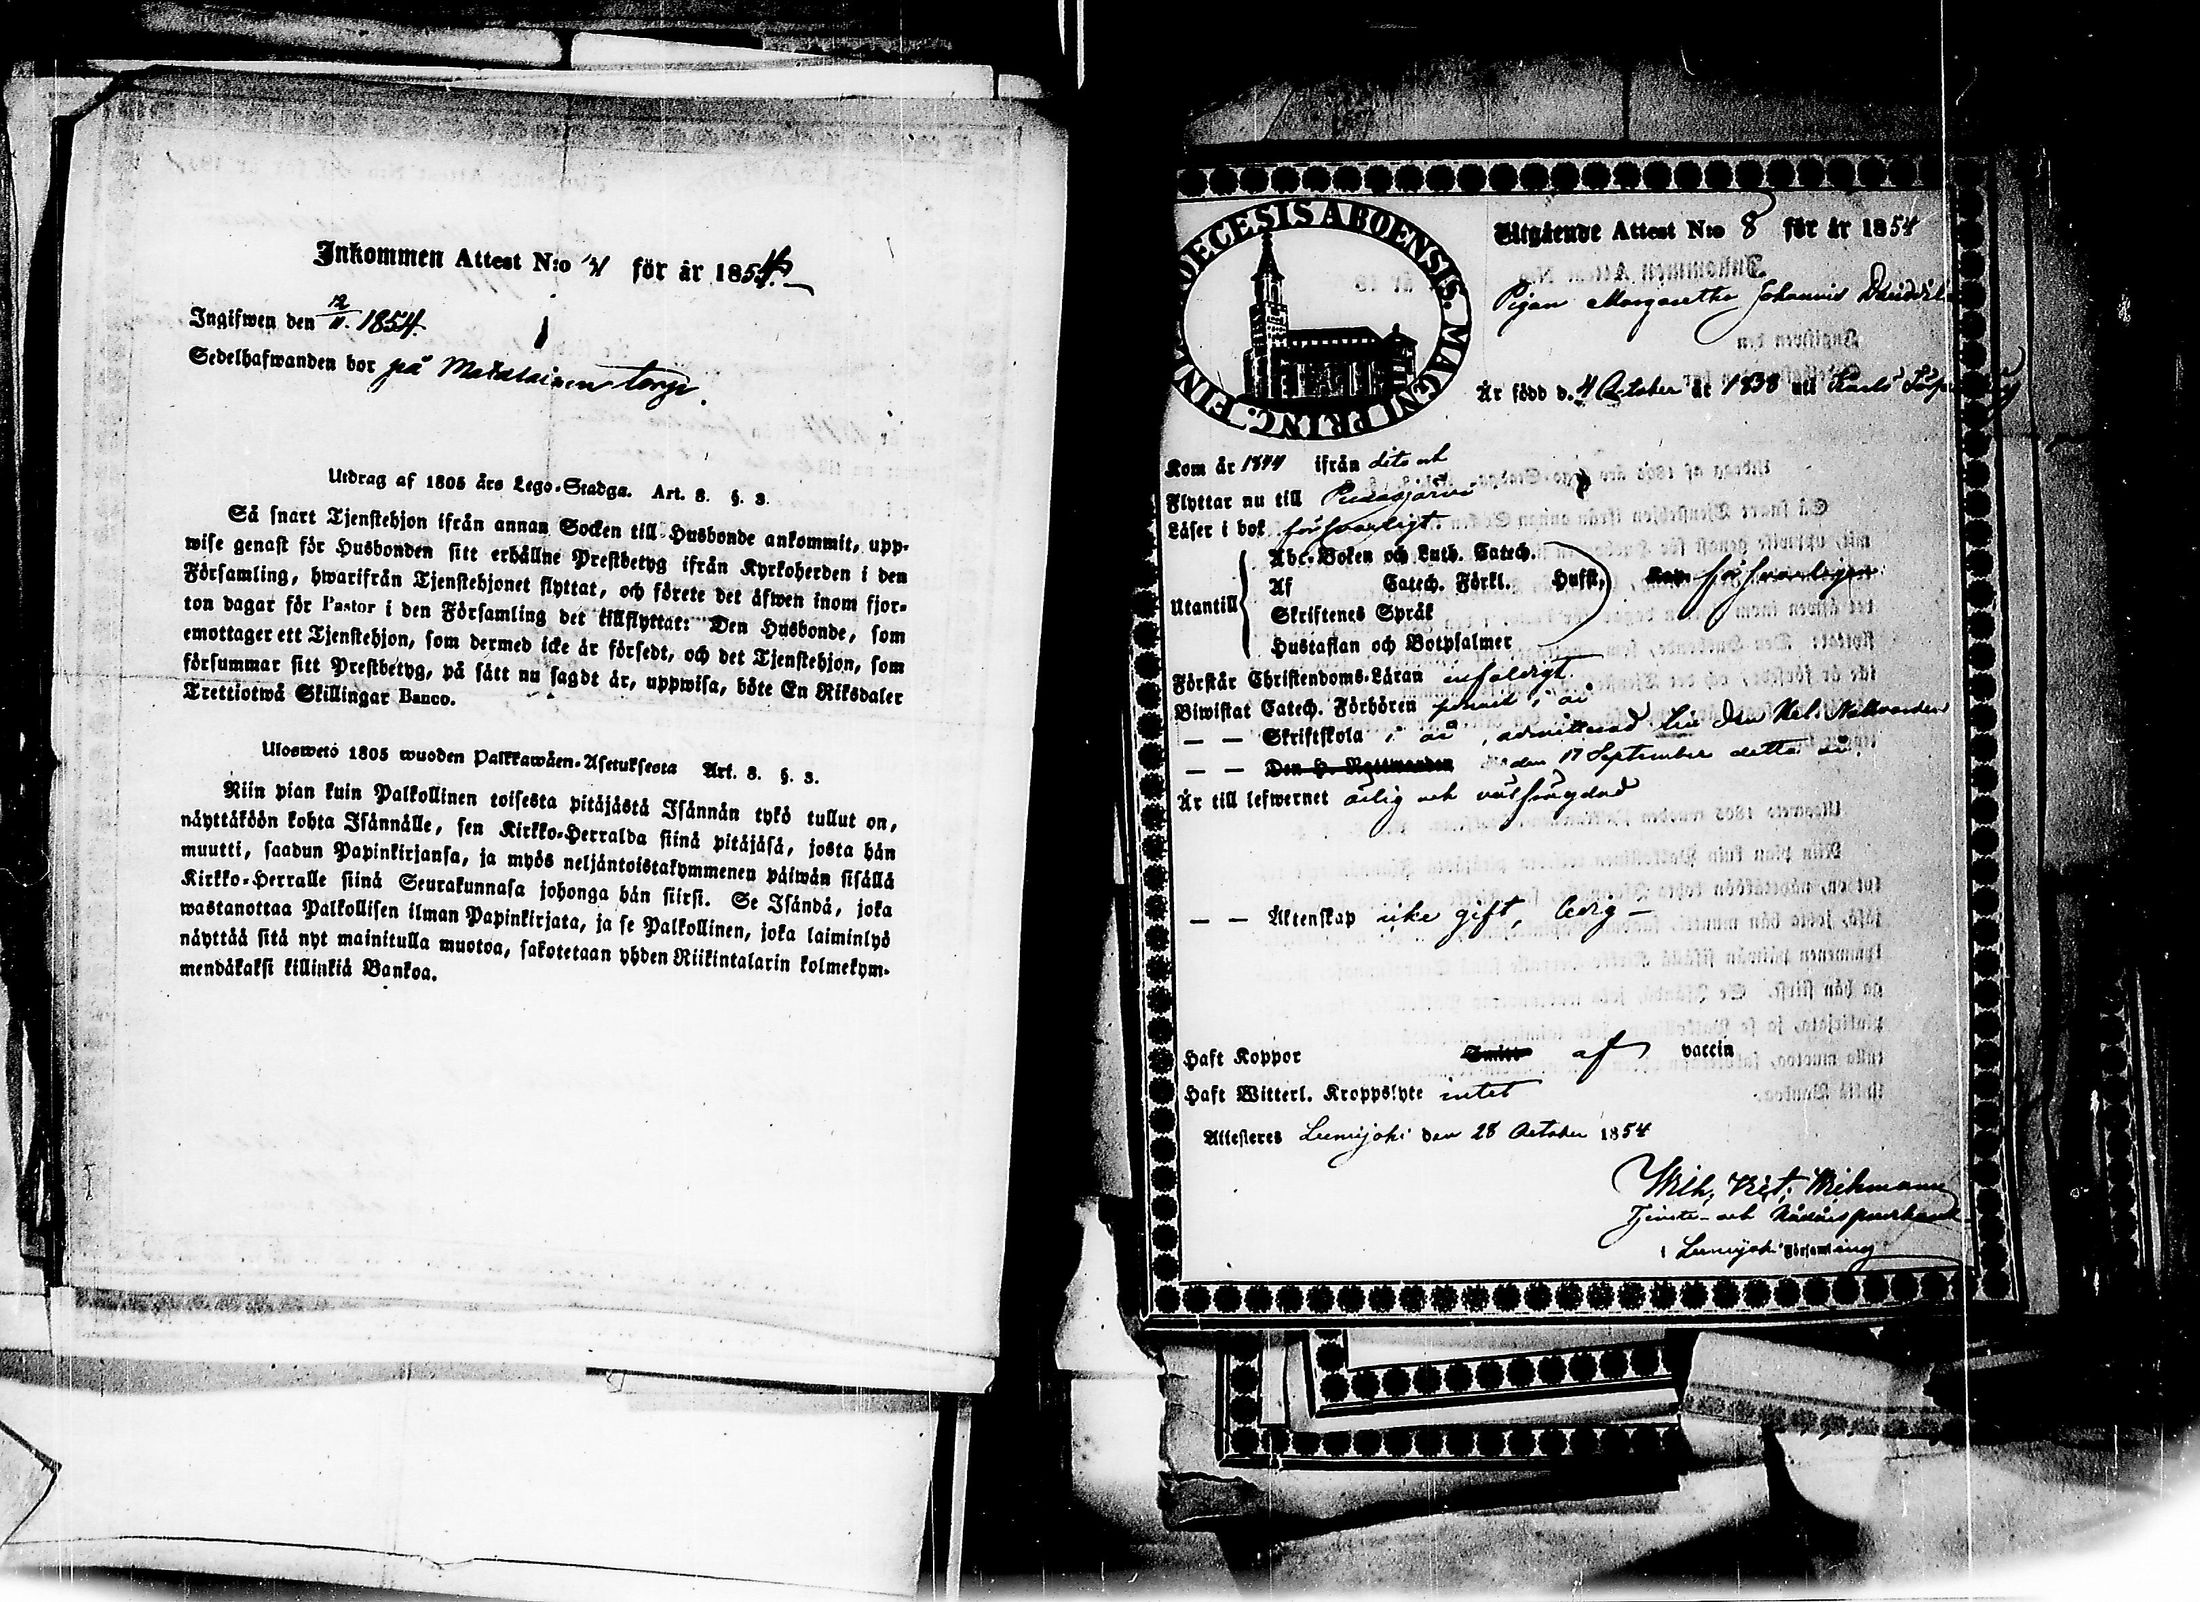 Inkommen Attest N:o 4 för år 1854.
Ingifwen den 12/11. 1854.
Sedelhafwanden bor på torp.
Utdrag af 1805 års Lego-Stadga. Art. 8. §. 3.
Så snart Tjenstehjon ifrån annan Socken till Husbonde ankommit, upp-
wise genast för Husbonden sitt erhållne Prestbetyg ifrån Kyrkoherden i den
Församling, hwarifrån Tjenstehjonet flyttat, och förete det äfwen inom fjor-
ton dagar för Pastor i den Församling det tillflyttat: Den Husbonde, som
emottager ett Tjenstehjon, som dermed icke är försedt, och det Tjenstehjon, som
försummar sitt Prestbetyg, på sätt nu sagdt är, uppwisa, böte En Riksdaler
Trettiotwå Skillingar Banco.
Uloswetö 1805 wuoden Palkkawäen-Asetuksesta Art. 8. §. 3.
Niin pian kuin Palkollinen toisesta pitäjästä Isännän tykö tullut on,
näyttäköön kohta Isännälle, sen Kirkko-Herralda siinä pitäjäsä, josta hän
muutti, saadun Papinkirjansa, ja myös neljäntoistakymmenen päiwän sisällä
Kirkko-Herralle siinä Seurakunnasa johonga hän siirsi. Se Isändä, joka
wastanottaa Palkollisen ilman Papinkirjata, ja se Palkollinen, joka laiminlyö
näyttää sitä nyt mainitulla muotoa, sakotetaan yhden Riikintalarin kolmekym-
mendäkaksi killinkiä Bankoa.
DIOECESIS ABOENSIS. MAGNI PRINC. FINL.
Utgående Attest N:o 8 för år 1854
Pigan Margaretha Johanna
Är född d. 4 October år 1838 uti
Kom år 1844 ifrån dito och
Flyttar nu till Pudasjärvi
Läser i bok försvarligt
Abc-Boken och Luth. Catech.
Utantill Af Catech. Förkl. Hufst. försvarligen
Skriftenes Språk
Hustaflan och Botpsalmer
Förstår Christendoms-Läran enfaldigt.
Biwistat Catech. Förhören i år
— — Skriftskola i år, admitterad till den Hel. Nattvarden
— — Den H. Nattwarden den 17 September detta år.
Är till lefwernet ärlig och välfrägdad
— — Äktenskap icke gift, ledig —
Haft Koppor Smitt af vaccin
Haft Witterl. Kroppslyte intet
Attesteres Lumijoki den 28 October 1854
Wilh.
Tjenste- och Nådårspredikant
i Lumijoki Församling